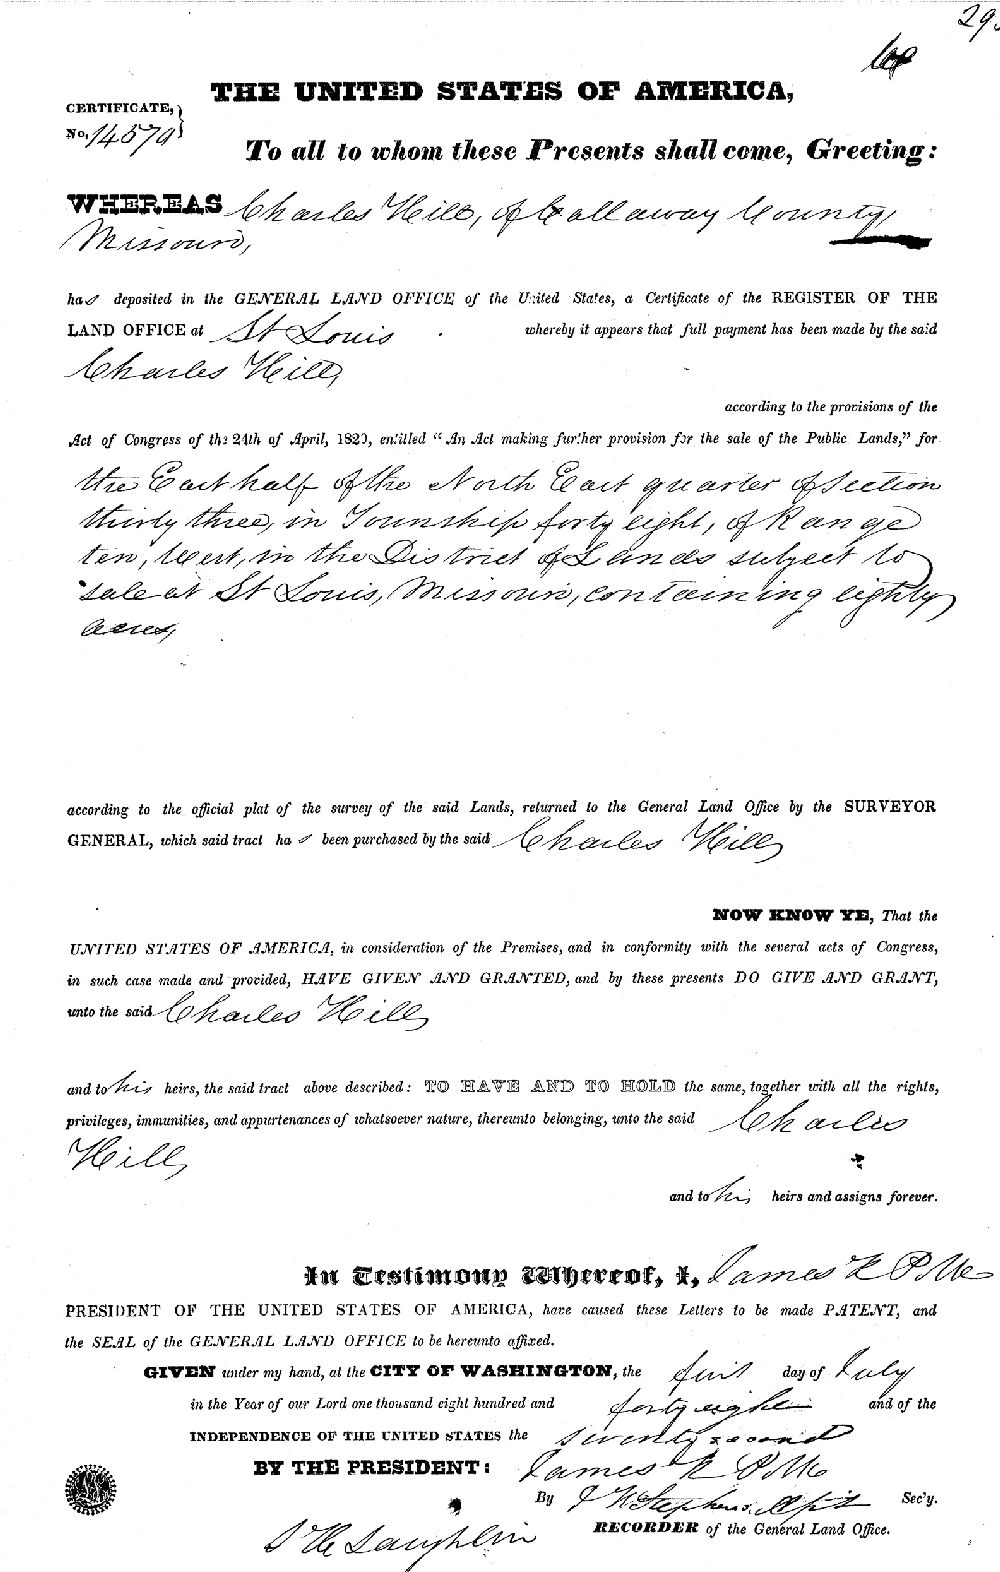 29
THE UNITED STATES OF AMERICA,
CERTIFICATE,
No. 14579
To all to whom these Presents shall come, Greeting:
WHEREAS Charles Hill, of Callaway County,
Missouri,
has deposited in the GENERAL LAND OFFICE of the United States, a Certificate of the REGISTER OF THE
LAND OFFICE at St Louis whereby it appears that full payment has been made by the said
Charles Hill,
according to the provisions of the
Act of Congress of the 24th of April, 1820, entitled "An Act making further provision for the sale of the Public Lands," for
the East half of the North East quarter of Section
thirty three, in Township forty eight, of Range
ten, West, in the District of Lands subject to
sale at St Louis, Missouri, containing eighty
acres,
according to the official plat of the survey of the said Lands, returned to the General Land Office by the SURVEYOR
GENERAL, which said tract has been purchased by the said Charles Hill,
NOW KNOW YE, That the
UNITED STATES OF AMERICA, in consideration of the Premises, and in conformity with the several acts of Congress,
in such case made and provided, HAVE GIVEN AND GRANTED, and by these presents DO GIVE AND GRANT,
unto the said Charles Hill,
and to his heirs, the said tract above described: TO HAVE AND TO HOLD the same, together with all the rights,
privileges, immunities, and appurtenances of whatsoever nature, thereunto belonging, unto the said Charles
Hill,
and to his heirs and assigns forever.
In Testimony Whereof, I, James K Polk
PRESIDENT OF THE UNITED STATES OF AMERICA, have caused these Letters to be made PATENT, and
the SEAL of the GENERAL LAND OFFICE to be hereunto affixed.
GIVEN under my hand, at the CITY OF WASHINGTON, the first day of July
in the Year of our Lord one thousand eight hundred and forty eight and of the
INDEPENDENCE OF THE UNITED STATES the seventy second
BY THE PRESIDENT: James K Polk
By J K Stephens, Asst Sec'y.
S H Laughlin RECORDER of the General Land Office.